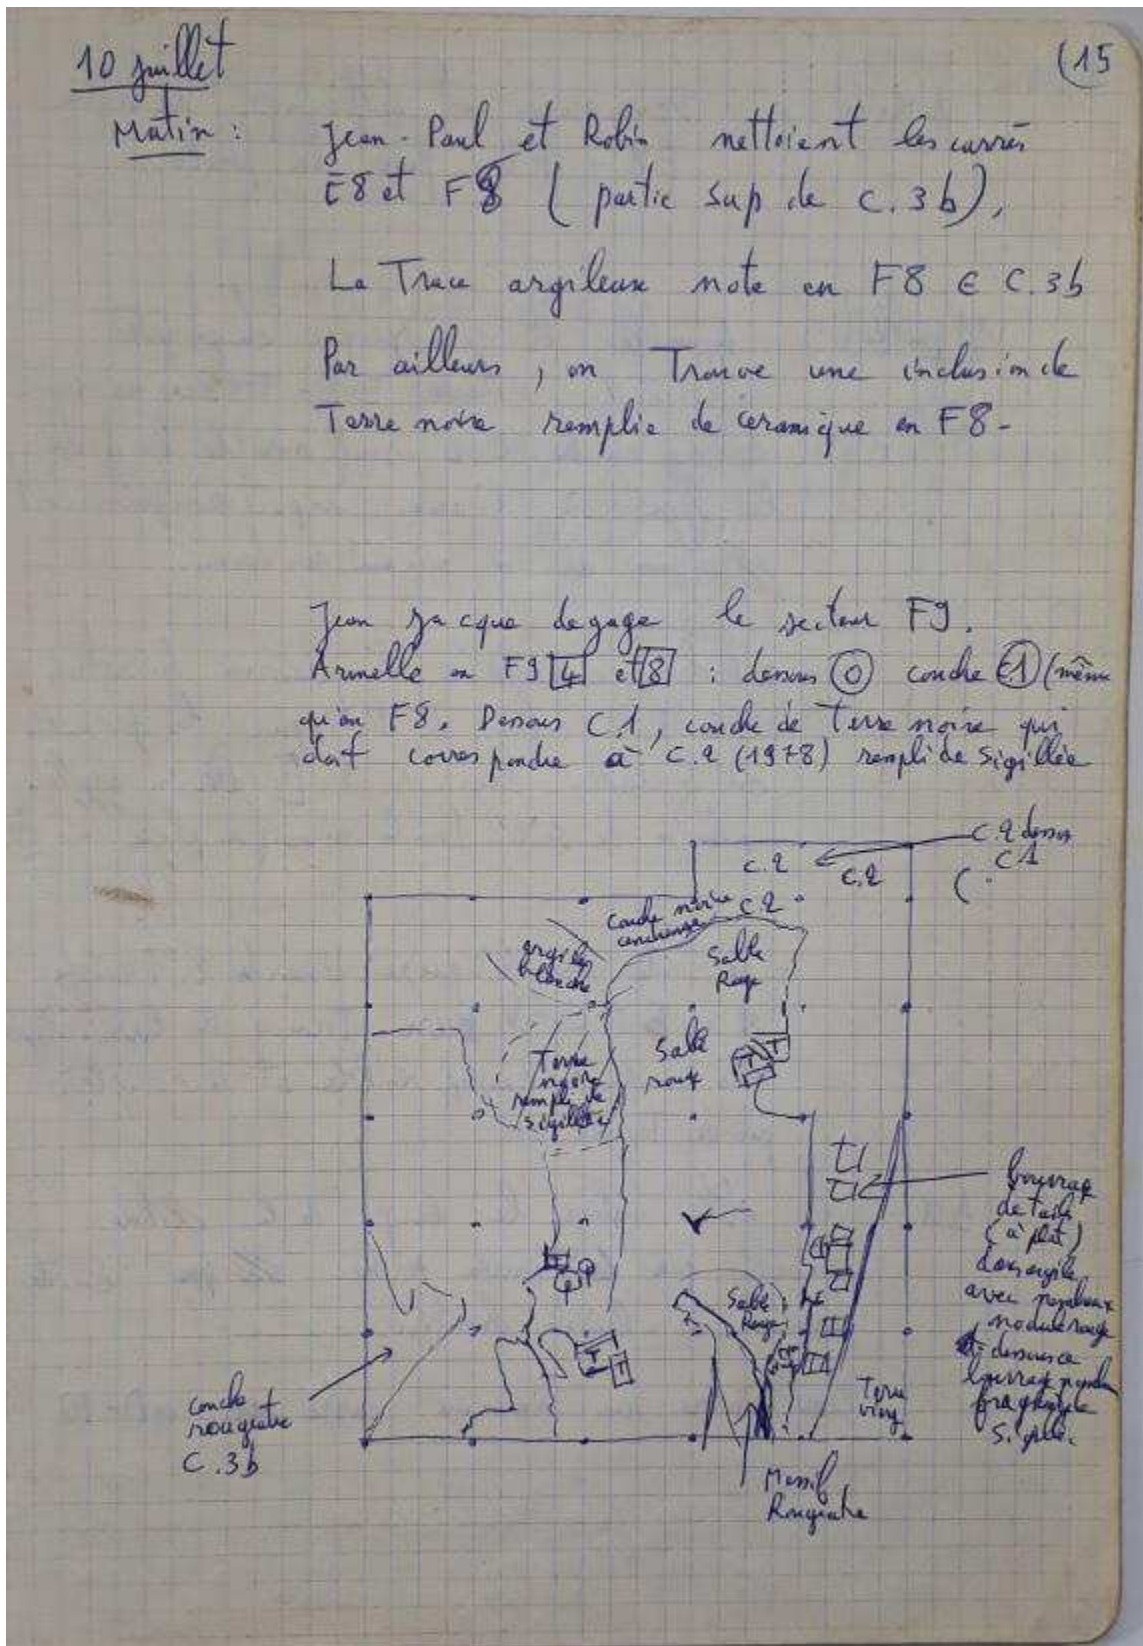 10 juillet
(15
Matin :
Jean-Paul et Robin nettoient les carrés
E8 et F8 (partie sup de C.3b),
La Trace argileuse note en F8 ∈ C.3b
Par ailleurs, on Trouve une inclusion de
Terre noire remplie de ceramique en F8-
Jean Jacque degage le secteur F9.
Armelle en F9 4 et 8 : dessous 0 couche C1 (même
qu'en F8. Dessous C1, couche de terre noire qui
doit correspondre à C.2 (1978) rempli de sigillée
C.2 dessous
C1
C.2
C.2
C.2
couche noire
cendreuse
argile
blanche
Sable
Rouge
Sable
roux
Terre
noire
rempli de
sigillée
T
T
T
T
bourrage
de tuile
(à plat)
dans argile
avec nombreux
nodule rouge
dessous ce
bourrage
fragments
Sable
Rouge
Terre
couche
rougeatre
C.3b
Massif
Rougeatre